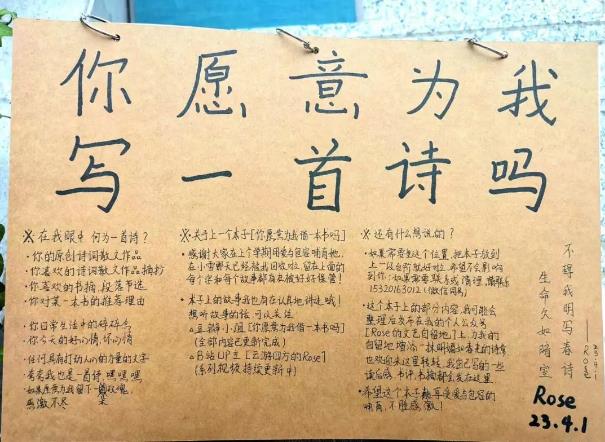 你愿意为我
写一首诗吗
※在我眼中 何为一首诗？
·你的原创诗词散文作品
·你喜欢的诗词散文作品摘抄
·你喜欢的书摘,段落节选
·你对某一本书的推荐理由
·你日常生活中的碎碎念
·你今天的好心情,坏心情
任何具有打动人心的力量的文字
夸夸我也是一首诗,嘿嘿嘿
如果愿意为我留下一首
感激不尽
※关于上一个本子[你愿意为我借一本书吗]
·感谢大家在上个学期用爱与包容哺育他,
在小雪那天已经被我回收啦,留在上面的
每个字和每个故事都有在被好好保管！
·本子上的故事我也有在认真地讲述哦！
想听故事的话,可以关注
△豆瓣小组[你愿意为我借一本书吗]
(全部内容已更新完成)
△B站UP主[云游四方的Rose]
(系列视频持续更新中)
※还有什么想说的？
·如果需要坐这个位置,把本子放到
上一级台阶就好啦,希望不会影响
到你;如果需要联系或清理,请联系
15320163012(微信同号)
·这个本子上的部分内容,我可能会
整理后发布在我的个人公众号
[Rose的文艺自留地]上,我的
也欢迎来这里转转,我自己写的一些
读后感,书评,书摘都会发在这里
·希望这个本子能享受爱与包容的
哺育,不胜感激！
不辞我明写春诗
生命久如暗室
——Rose
23.4.1
Rose
23.4.1